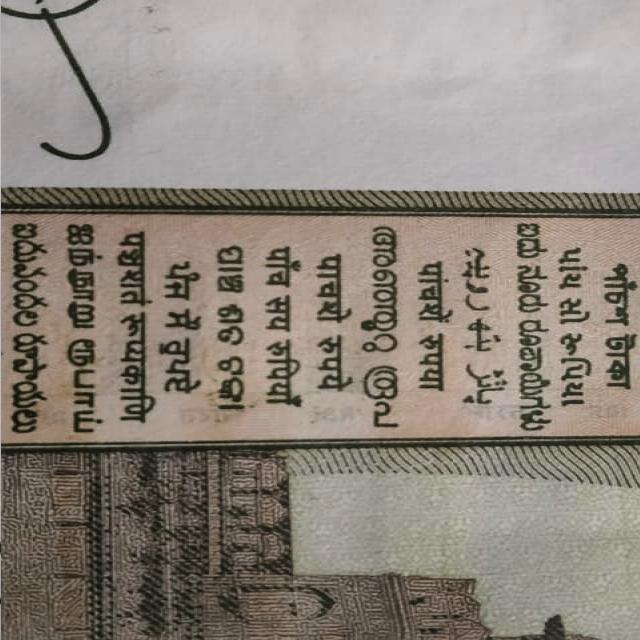 পাঁচশ টাকা
પાંચ સો રૂપિયા
ಐದು ನೂರು ರೂಪಾಯಿಗಳು
पांचशें रुपया
അഞ്ഞൂറു രൂപ
पाचशे रुपये
पाँच सय रुपियाँ
ପାଞ୍ଚ ଶତ ଟଙ୍କା
ਪੰਜ ਸੌ ਰੁਪਏ
पञ्चशतं रूप्यकाणि
ஐந்நூறு ரூபாய்
ఐదువందల రూపాయలు